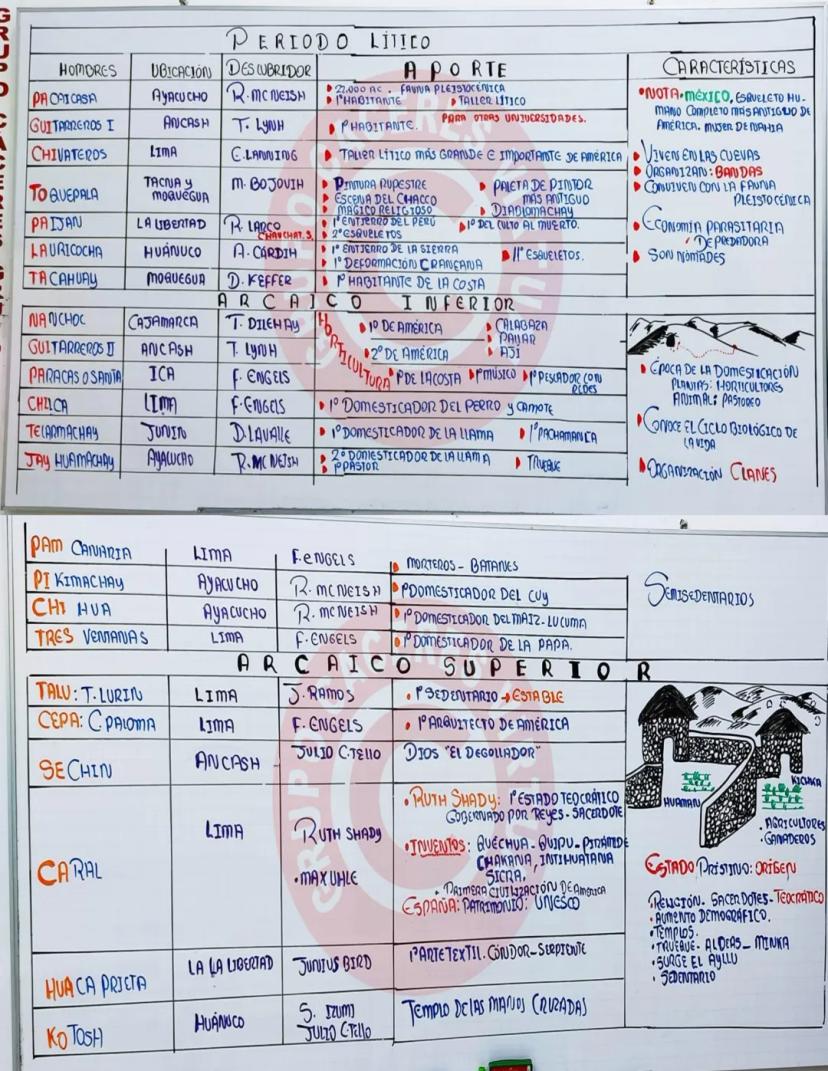 PERIODO LÍTICO
HOMBRES UBICACIÓN DESCUBRIDOR APORTE CARACTERÍSTICAS
PACAICASA AYACUCHO R. MC NEISH
22.000 AC. FAUNA PLEISTOCÉNICA
1° HABITANTE TALLER LÍTICO
GUITARREROS I ANCASH T. LYNH 1° HABITANTE.
PARA OTRAS UNIVERSIDADES.
CHIVATEROS LIMA E. LANNING TALLER LÍTICO MÁS GRANDE E IMPORTANTE DE AMÉRICA
TOQUEPALA TACNA Y MOQUEGUA M. BOJOVIH
PINTURA RUPESTRE
ESCENA DEL CHACCO
MAGICO RELIGIOSO
PALETA DE PINTOR
MÁS ANTIGUO
DIABLOMACHAY
PAIJAN LA LIBERTAD R. LARCO
CHAUCHAT. S.
1° ENTIERRO DEL PERU 1° DEL CULTO AL MUERTO.
2° ESQUELETOS
LAURICOCHA HUÁNUCO A. CARDIH
1° ENTIERRO DE LA SIERRA
1° DEFORMACIÓN CRANEANA
11° ESQUELETOS.
TACAHUAY MOQUEGUA D. KEFFER 1° HABITANTE DE LA COSTA
NOTA: MÉXICO, ESQUELETO HU-
MANO COMPLETO MÁS ANTIGUO DE
AMÉRICA. MUJER DE NAHIA
VIVEN EN LAS CUEVAS
ORGANIZAN: BANDAS
CONVIVEN CON LA FAUNA
PLEISTOCÉNICA
ECONOMÍA PARASITARIA
DEPREDADORA
SON NÓMADES
ARCAICO INFERIOR
NANCHOC CAJAMARCA T. DILEHAY
HORTICULTURA
1° DE AMÉRICA
CALABAZA
PAYAR
AJÍ
GUITARREROS II ANCASH T. LYNH 2° DE AMÉRICA
PARACAS O SANTA ICA F. ENGELS 1° DE LA COSTA 1° MÚSICO 1° PESCADOR CON
REDES
CHILCA LIMA F. ENGELS 1° DOMESTICADOR DEL PERRO Y CAMOTE
TELARMACHAY JUNIN D. LAVALLE 1° DOMESTICADOR DE LA LLAMA 1° PACHAMANCA
JAY HUAMACHAY AYACUCHO R. MC NEISH
2° DOMESTICADOR DE LA LLAMA
1° PASTOR
TRUEQUE
ÉPOCA DE LA DOMESTICACIÓN
PLANTAS: HORTICULTORES
ANIMAL: PASTOREO
CONOCE EL CICLO BIOLÓGICO DE
LA VIDA
ORGANIZACIÓN CLANES
PAM CANARIA LIMA F. ENGELS MORTEROS - BATANES
PI KIMACHAY AYACUCHO R. MC NEISH 1° DOMESTICADOR DEL CUY
CHI HUA AYACUCHO R. MC NEISH 1° DOMESTICADOR DEL MAIZ - LUCUMA
TRES VENTANAS LIMA F. ENGELS 1° DOMESTICADOR DE LA PAPA.
SEMISEDENTARIOS
ARCAICO SUPERIOR
TALU: T. LURIN LIMA J. RAMOS 1° SEDENTARIO → ESTABLE
CEPA: C. PALOMA LIMA F. ENGELS 1° ARQUITECTO DE AMÉRICA
SECHIN ANCASH JULIO C. TELLO DIOS "EL DEGOLLADOR"
CARAL LIMA RUTH SHADY
• MAX UHLE
• RUTH SHADY: 1° ESTADO TEOCRÁTICO
GOBERNADO POR REYES - SACERDOTE
• INVENTOS: QUÉCHUA - QUIPU - PIRÁMIDE
CHAKANA, INTIHUATANA
SICRA.
• PRIMERA CIVILIZACIÓN DE AMERICA
ESPAÑA: PATRIMONIO: UNESCO
HUACA PRIETA LA LA LIBERTAD JUNIUS BIRD 1° ARTE TEXTIL. CÓNDOR - SERPIENTE
KOTOSH HUÁNUCO S. IZUMI
JULIO C. TELLO
TEMPLO DE LAS MANOS CRUZADAS
HUAMAN
KICHKA
• AGRICULTORES
• GANADEROS
ESTADO PRÍSTINO: ORÍGEN
RELIGIÓN - SACERDOTES - TEOCRÁTICO
• AUMENTO DEMOGRÁFICO.
• TEMPLOS.
• TRUEQUE - ALDEAS - MINKA
• SURGE EL AYLLU
• SEDENTARIO
GRUPO CACERES VIRTUAL